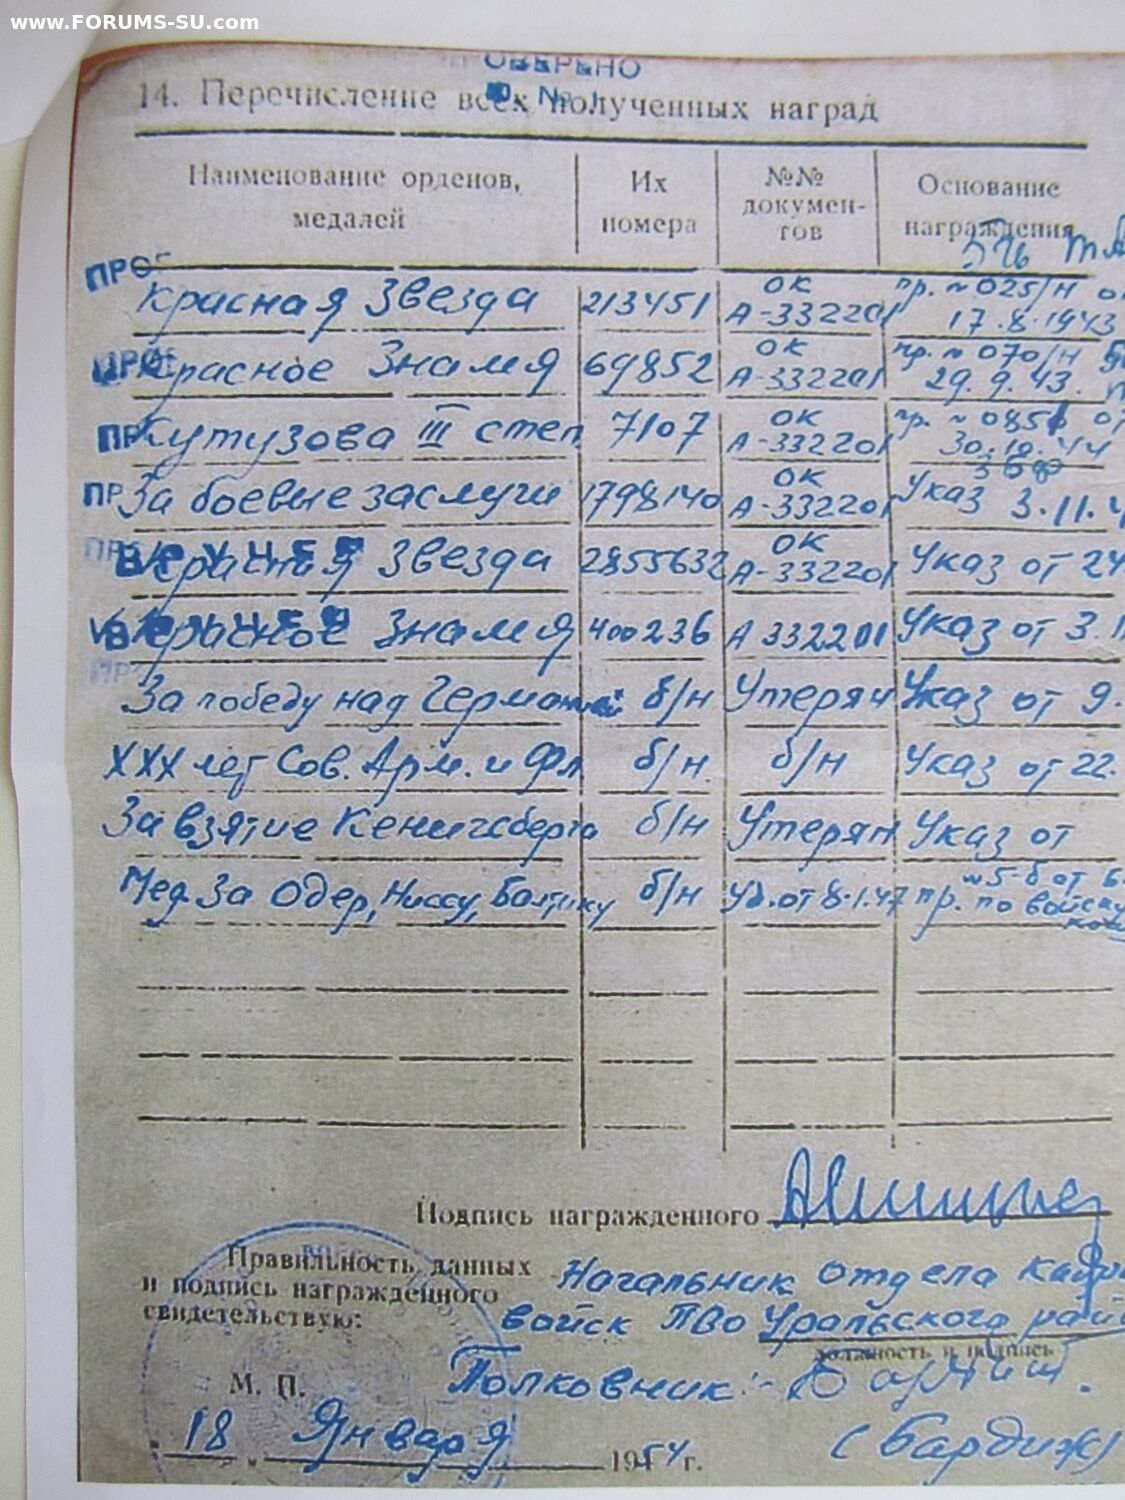 www.FORUMS-SU.com
14. Перечисление всех полученных наград
Наименование орденов, медалей
Их номера
№№ докумен-тов
Основание награждения
Красная Звезда 213451 ОК А-332201 пр. № 025/н 17.8.1943
Красное Знамя 69852 ОК А-332201 пр. № 070/н 29.9.43.
Кутузова III степ. 7107 ОК А-332201 пр. № 30.10.44
За боевые заслуги 1798140 ОК А-332201 Указ 3.11.4
Красная Звезда 2855632 ОК А-332201 Указ от 24
Красное Знамя 400236 А 332201 Указ от 3.
За победу над Германией б/н Утерян Указ от 9.
XXX лет Сов. Арм. и Фл б/н б/н Указ от 22.
За взятие Кенигсберга б/н Утерян Указ от
Мед. За Одер, Ниссу, Балтику б/н Уд. от 8.1.47 пр. по войску
Подпись награжденного
Правильность данных
и подпись награжденного
свидетельствую:
Начальник отдела кадр
войск ПВО Уральского рай
должность и подпись
М. П.
Полковник:-
18 Января 1954 г.
(Бардиж)